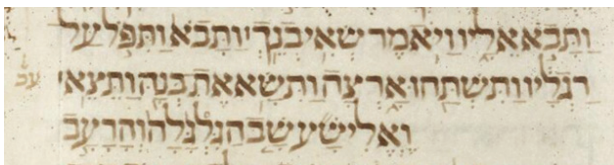 וַתָּבֹא אֵלָיו וַיֹּאמֶר שְׂאִי בְנֵךְ וַתָּבֹא וַתִּפֹּל עַל
רַגְלָיו וַתִּשְׁתַּחוּ אָרְצָה וַתִּשָּׂא אֶת בְּנָהּ וַתֵּצֵא
וֶאֱלִישָׁע שָׁב הַגִּלְגָּלָה וְהָרָעָב